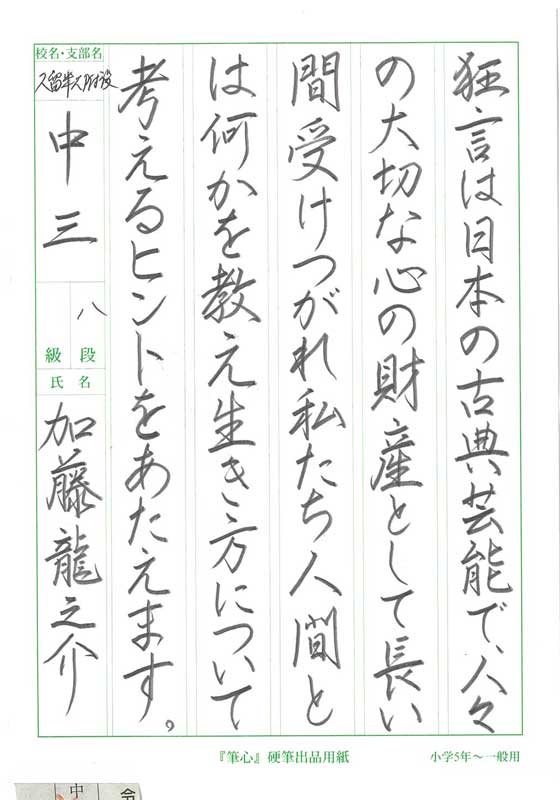 狂言は日本の古典芸能で、人々
の大切な心の財産として長い
間受けつがれ私たち人間と
は何かを教え生き方について
考えるヒントをあたえます。
校名・支部名
久留米大附設
中三
八
段
級
氏名
加藤龍之介
『筆心』硬筆出品用紙
小学5年～一般用
中
令